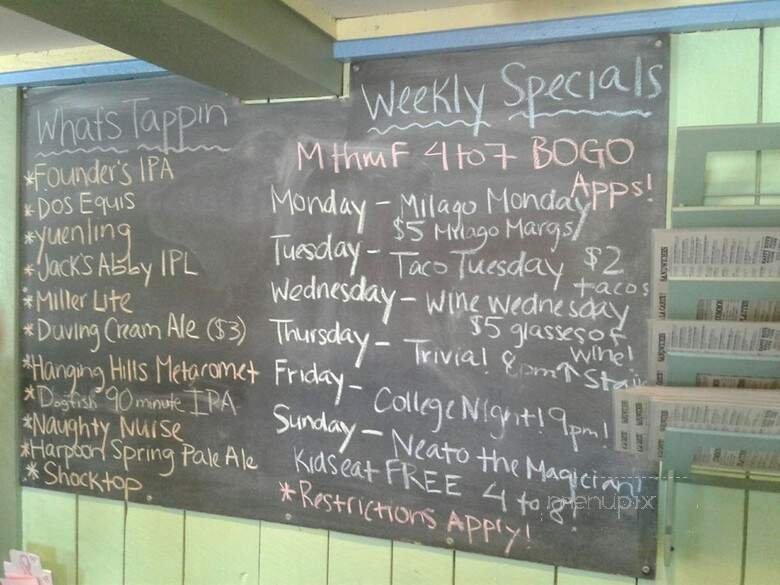 What's Tappin
*Founder's IPA
*Dos Equis
*yuenling
*Jack's Abby IPL
*Miller Lite
*Duving Cream Ale ($3)
*Hanging Hills Metacomet
*Dogfish 90 minute IPA
*Naughty Nurse
*Harpoon Spring Pale Ale
*Shocktop.
Weekly Specials
M thru F 4 to 7 BOGO
Apps!
Monday - Milago Monday
$5 Milago Margs!
Tuesday - Taco Tuesday $2
tacos
Wednesday - Wine Wednesday
$5 glasses of
wine!
Thursday - Trivia! 8pm ↑ Stairs
Friday - College Night! 9pm!
Sunday - Neato the Magician!
Kids eat FREE 4 to 8!
*Restrictions Apply!
menupix
SANDWICHES